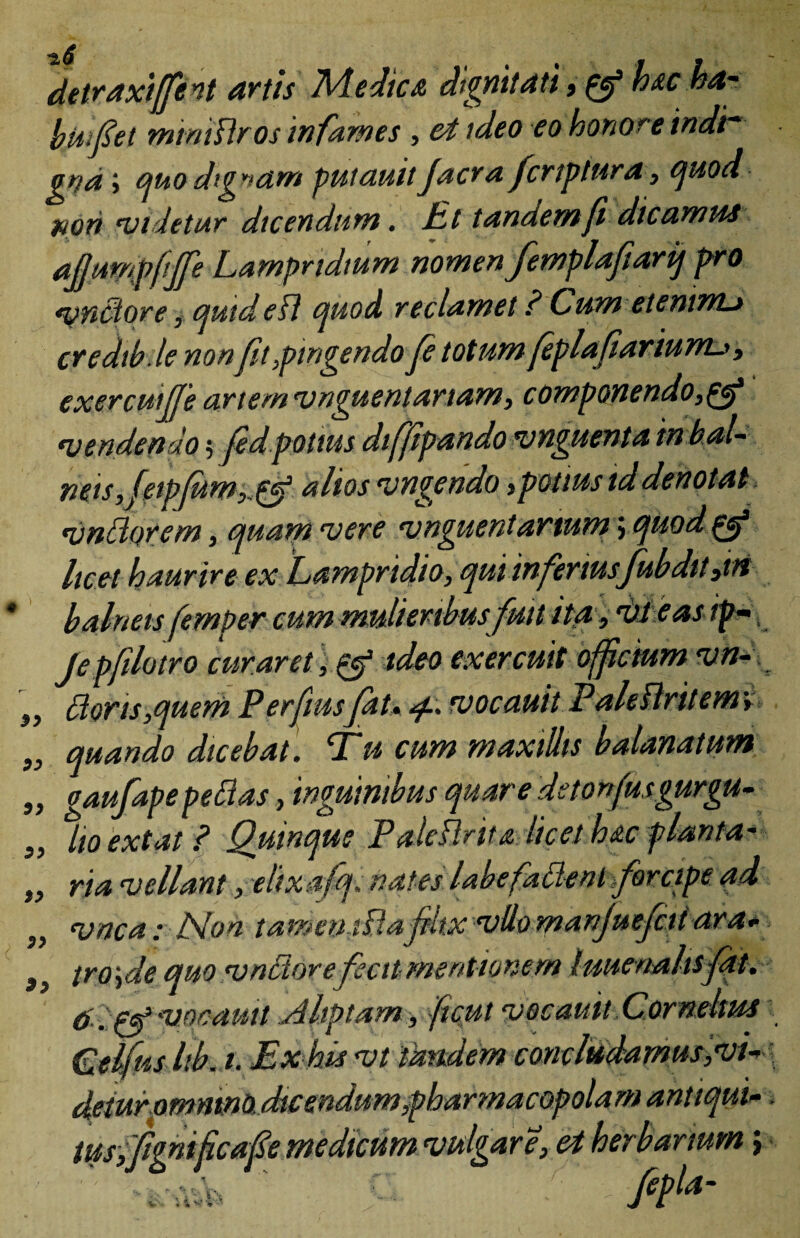 26
detraxiſſent artis Medicæ dignitati, & hæc ha-
buiſſet miniſtros infames, et ideo eo honore indi-
gna; quo dignam putauit ſacra ſcriptura, quod
non videtur dicendum. Et tandem ſi dicamus
aſſumpſiſſe Lampridium nomen ſemplaſiarij pro
vnctore, quid eſt quod reclamet? Cum etenim
credib.le non ſit, pingendo ſe totum ſeplaſiarium,
exercuiſſe artem vnguentariam, componendo, &
vendendo; ſed potius diſſipando vnguenta in bal-
neis, ſeipſum, & alios vngendo, potius id denotat
vnctorem, quam vere vnguentarium; quod &
licet haurire ex Lampridio, qui inferius ſubdit, in
* balneis ſemper cum mulieribus fuit ita, vt eas ip-
ſe pſilotro curaret, & ideo exercuit officium vn-
„ ctoris, quem Perſius ſat. 4. vocauit Paleſtritem;
„ quando dicebat. Tu cum maxillis balanatum
„ gauſape pectas, inguinibus quare detonſus gurgu-
„ lio extat? Quinque Paleſtritæ licet hæc planta-
„ ria vellant, elixaſq. nates labefactent forcipe ad
„ vnca: Non tamen iſta filix vllo manſueſcit ara-
„ tro; de quo vnctore fecit mentionem Iuuenalis ſat.
6. & vocauit Aliptam, ſicut vocauit Cornelius
Celſus lib. 1. Ex his vt tandem concludamus, vi-
detur omnino dicendum, pharmacopolam antiqui-
tus, ſignificaſſe medicum vulgare, et herbarium;
ſepla-